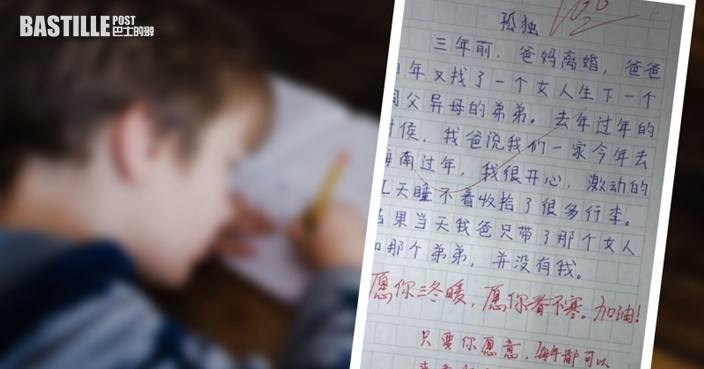 BASTILLE POST
巴士的報
孤独
三年前，爸妈离婚，爸爸
年又找了一个女人生下一个
同父异母的弟弟。去年过年的
时候，我爸说我们一家今年去
海南过年，我很开心，激动的
几天睡不着收拾了很多行李。
结果当天我爸只带了那个女人
和那个弟弟，并没有我。
愿你三冬暖，愿你春不寒。加油！
只要你愿意，每年都可以